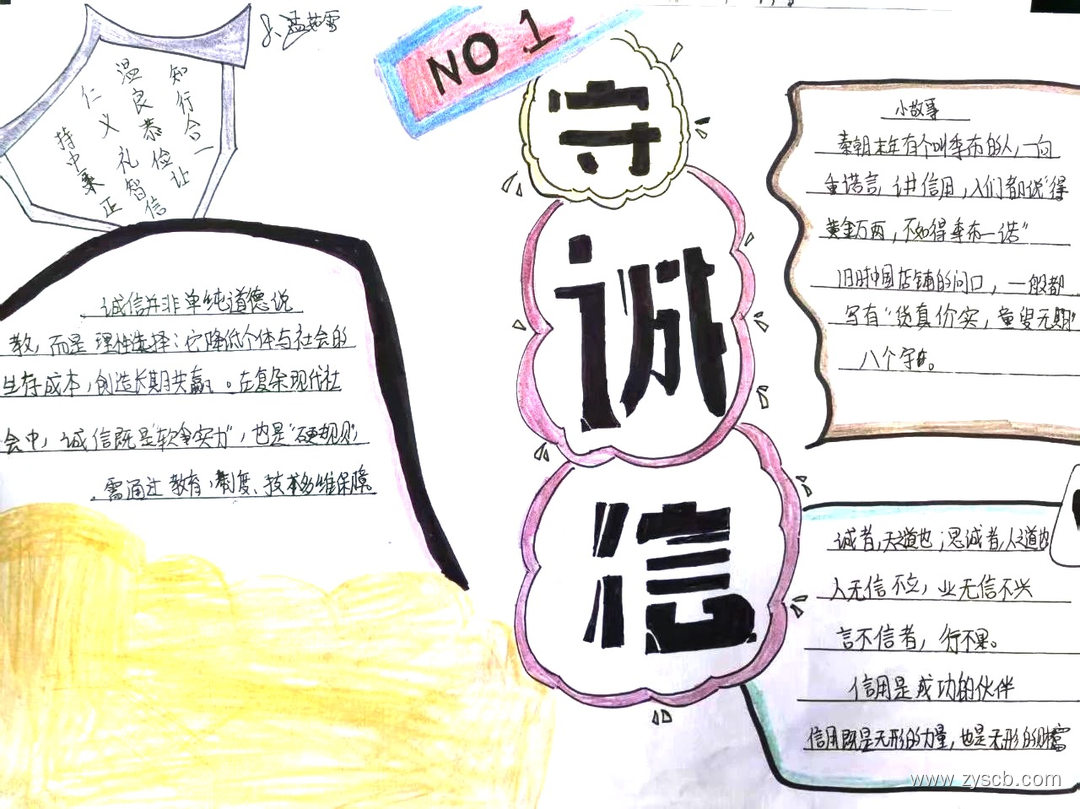 NO 1
守
诚
信
知行合一
温良恭俭让
仁义礼智信
持中秉正
诚信并非单纯道德说
教，而是理性选择：它降低个体与社会的
生存成本，创造长期共赢。在复杂现代社
会中，诚信既是"软实力"，也是"硬规则"
需通过教育、制度、技术多维保障
小故事
秦朝末年有个叫季布的人，一向
重诺言，讲信用，人们都说"得
黄金万两，不如得季布一诺"
旧时中国店铺的门口，一般都
写有"货真价实，童叟无欺"
八个字。
诚者，天之道也；思诚者，人之道也
人无信不立，业无信不兴
言不信者，行不果。
信用是成功的伙伴
信用既是无形的力量，也是无形的财富
www.zyscb.com